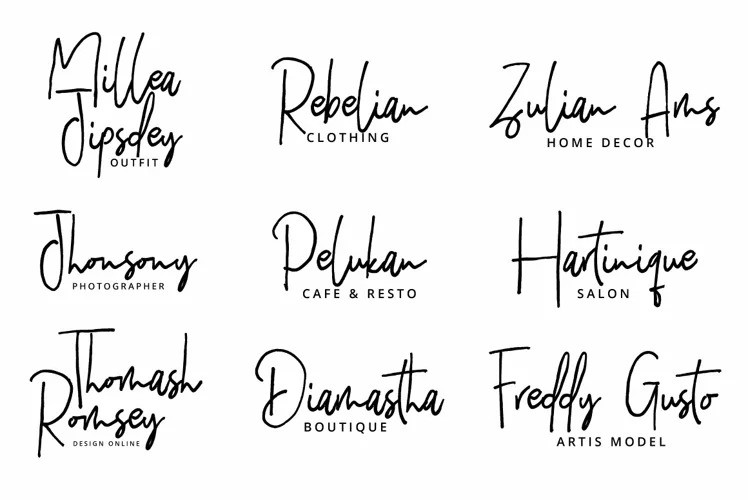 Millea
Jipsdey
OUTFIT
Rebelian
CLOTHING
Zulian Ams
HOME DECOR
Jhonsony
PHOTOGRAPHER
Pelukan
CAFE & RESTO
Hartinique
SALON
Thomash
Romsey
DESIGN ONLINE
Diamastha
BOUTIQUE
Freddy Gusto
ARTIS MODEL